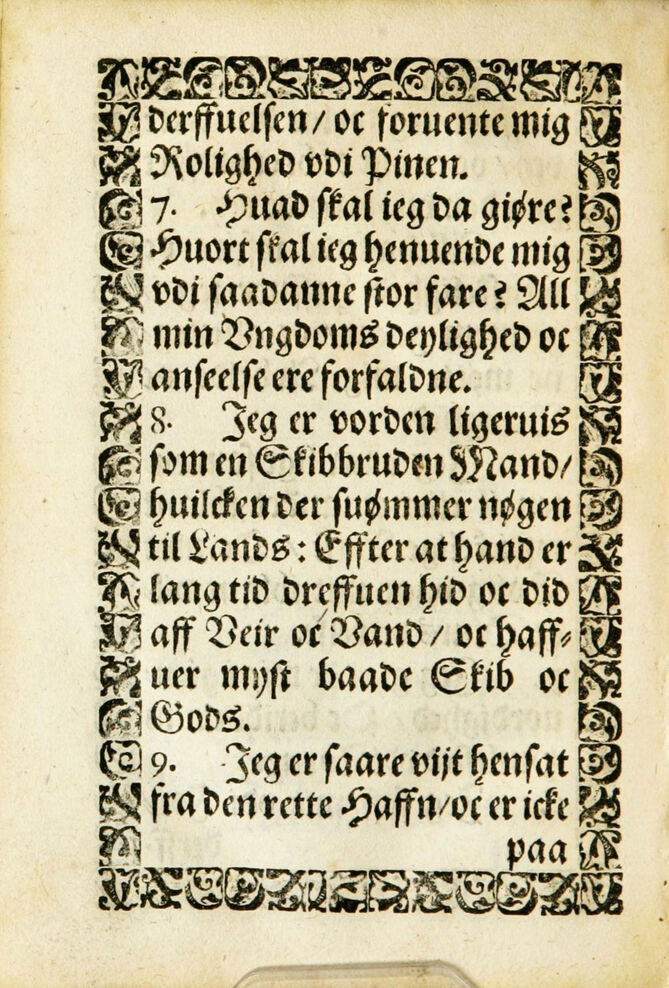 derffuelsen/ oc foruente mig
Rolighed vdi Pinen.
7. Huad skal ieg da giøre?
Huort skal ieg henuende mig
vdi saadanne stor fare? All
min Vngdoms deylighed oc
anseelse ere forfaldne.
8. Jeg er vorden ligeruis
som en Skibbruden Mand/
huilcken der suømmer nøgen
til Lands: Effter at hand er
lang tid dreffuen hid oc did
aff Veir oc Vand/ oc haff⸗
uer myst baade Skib oc
Gods.
9. Jeg er saare vijt hensat
fra den rette Haffn/oc er icke
paa